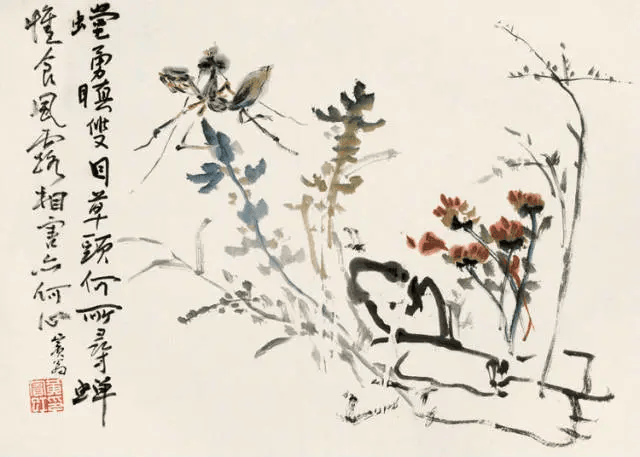 螳勇瞋雙目草頭何所尋蟬
惟食風露相害亦何心
賓翁